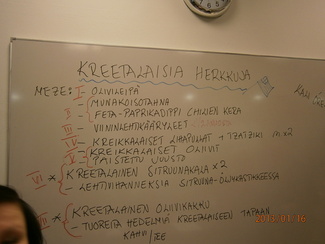 KREETALAISIA HERKKUJA
MEZE: I - OLIVILEIPÄ
MUNAKOISOTAHNA
II - FETA-PAPRIKADIPPI CHILIEN KERA
III - VIININLEHTIKÄÄRYLEET
IV - KREIKKALAISET LIHAPULLAT + TZATZIKI M x2
KREIKKALAISET OLIIVIT
V - PAISTETTU JUUSTO
VI * KREETALAINEN SITRUUNAKALA x2
- LEHTIVIHANNEKSIA SITRUUNA-ÖLJYKASTIKKEESSA
VII * KREETALAINEN OLIIVIKAKKU
- TUOREITA HEDELMIÄ KREETALAISEEN TAPAAN
KAHVI/TEE
2013/01/16